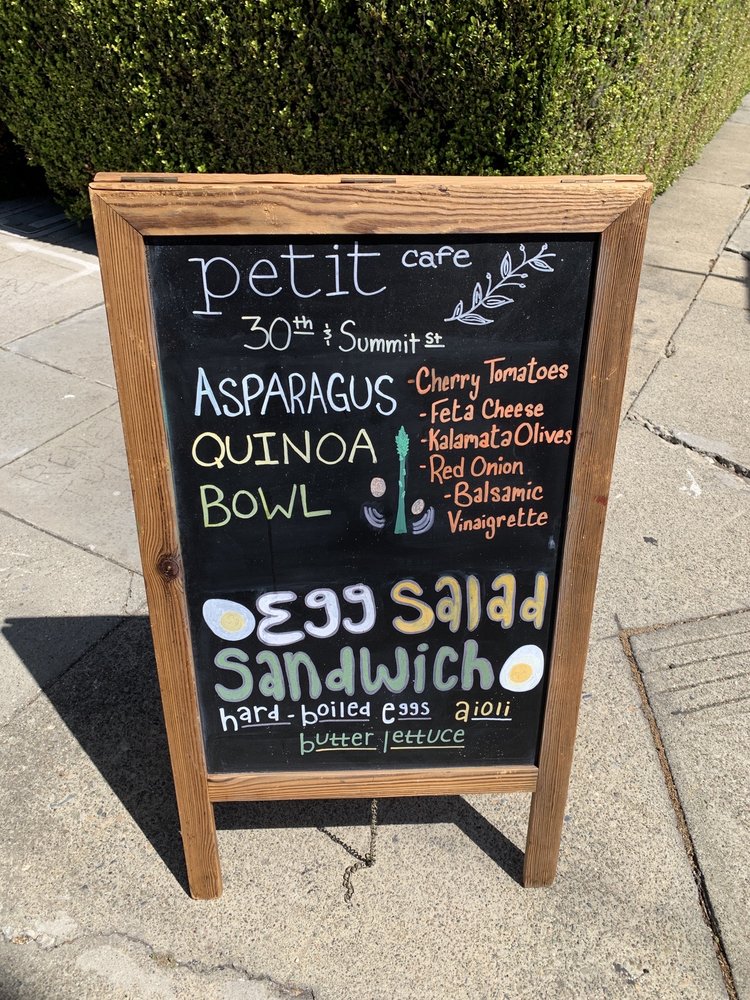 petit cafe
30th & Summit St
ASPARAGUS
QUINOA
BOWL
-Cherry Tomatoes
-Feta Cheese
-Kalamata Olives
-Red Onion
-Balsamic
Vinaigrette
Egg Salad
Sandwich
hard-boiled eggs aioli
butter lettuce